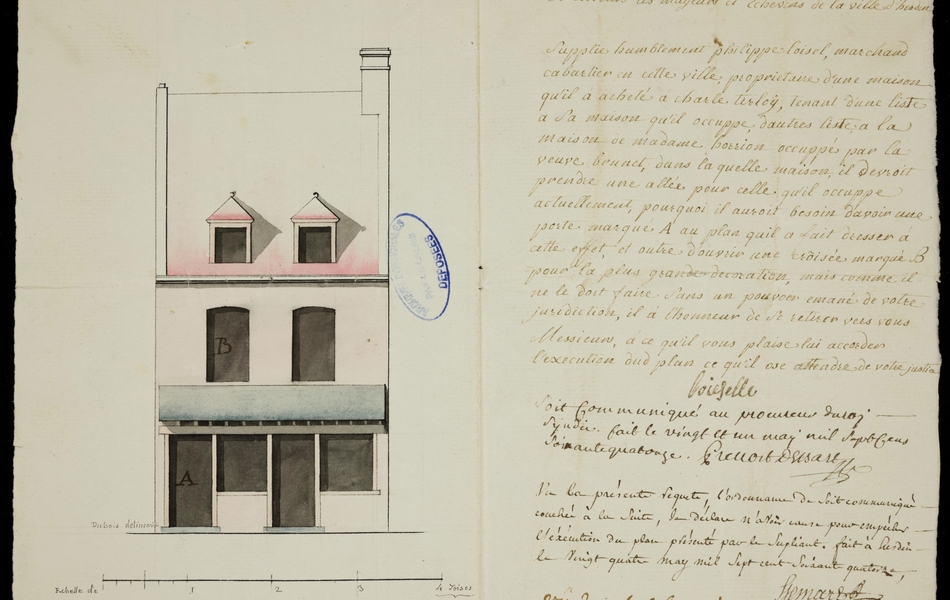 B
A
Dubois delineavit
Echelle de 1 2 3 4 Toises
DEPOSÉES
les mayeurs et Echevins de la ville d'hesdin
Supplie humblement philippe loisel, marchand
cabartier en cette ville, proprietaire d'une maison
qu'il a acheté a charle terloy, tenant d'une liste
à Sa maison qu'il occuppe, d'autres liste, a la
maison de madame horrion occuppé par la
veuve brunet, dans laquelle maison, il devroit
prendre une allée pour celle qu'il occuppe
actuellement, pourquoi il auroit besoin davoir une
porte marque A au plan quil a fait dresser à
cette effet, et outre d'ouvrir une croisée marqué B
pour la plus grande decoration, mais comme il
ne le doit faire Sans un pouvoir emané de votre
jurisdiction, il a l'honneur de Se retirer vers vous
Messieurs, à ce qu'il vous plaise lui accorder
l'execution dud plan ce qu'il ose attendre de votre justice
Soit Communiqué au procureur du roy
Syndic. fait le vingt et un may mil Sept Cens
Soixante quatorze.
Vu la présente requete, l'ordonnance de Soit communiqué
couchée à la Suite, Je déclare n'avoir cause pour empêcher
l'éxécution du plan présenté par le Supliant. fait à hesdin
le Vingt quatre may mil Sept cent Soixant quatorze,